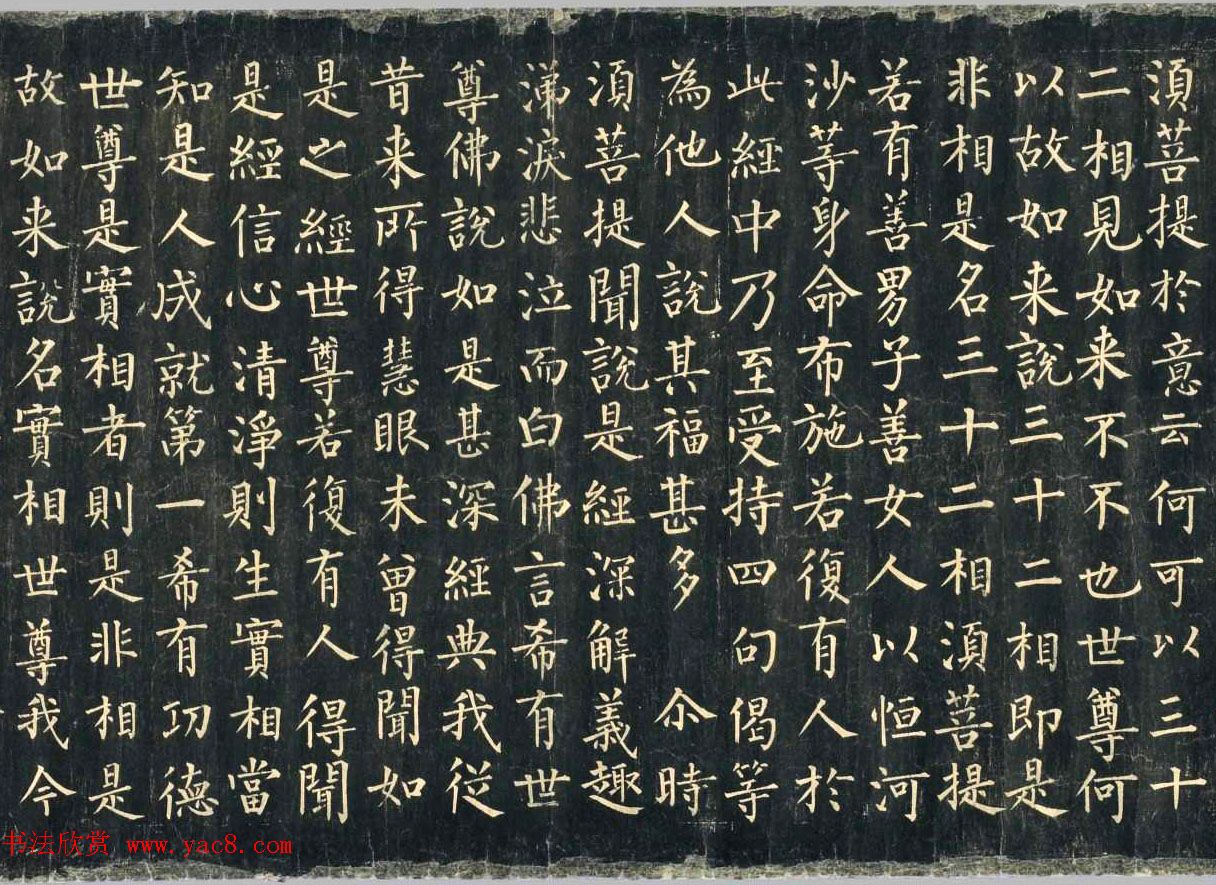 湏菩提於意云何可以三十
二相見如来不不也世尊何
以故如来說三十二相即是
非相是名三十二相湏菩提
若有善男子善女人以恒河
沙等身命布施若復有人於
此經中乃至受持四句偈等
為他人說其福甚多尒時
湏菩提聞說是經深解義趣
涕淚悲泣而白佛言希有世
尊佛說如是甚深經典我從
昔来所得慧眼未曾得聞如
是之經世尊若復有人得聞
是經信心清淨則生實相當
知是人成就第一希有功德
世尊是實相者則是非相是
故如来說名實相世尊我今
书法欣赏 www.yac8.com